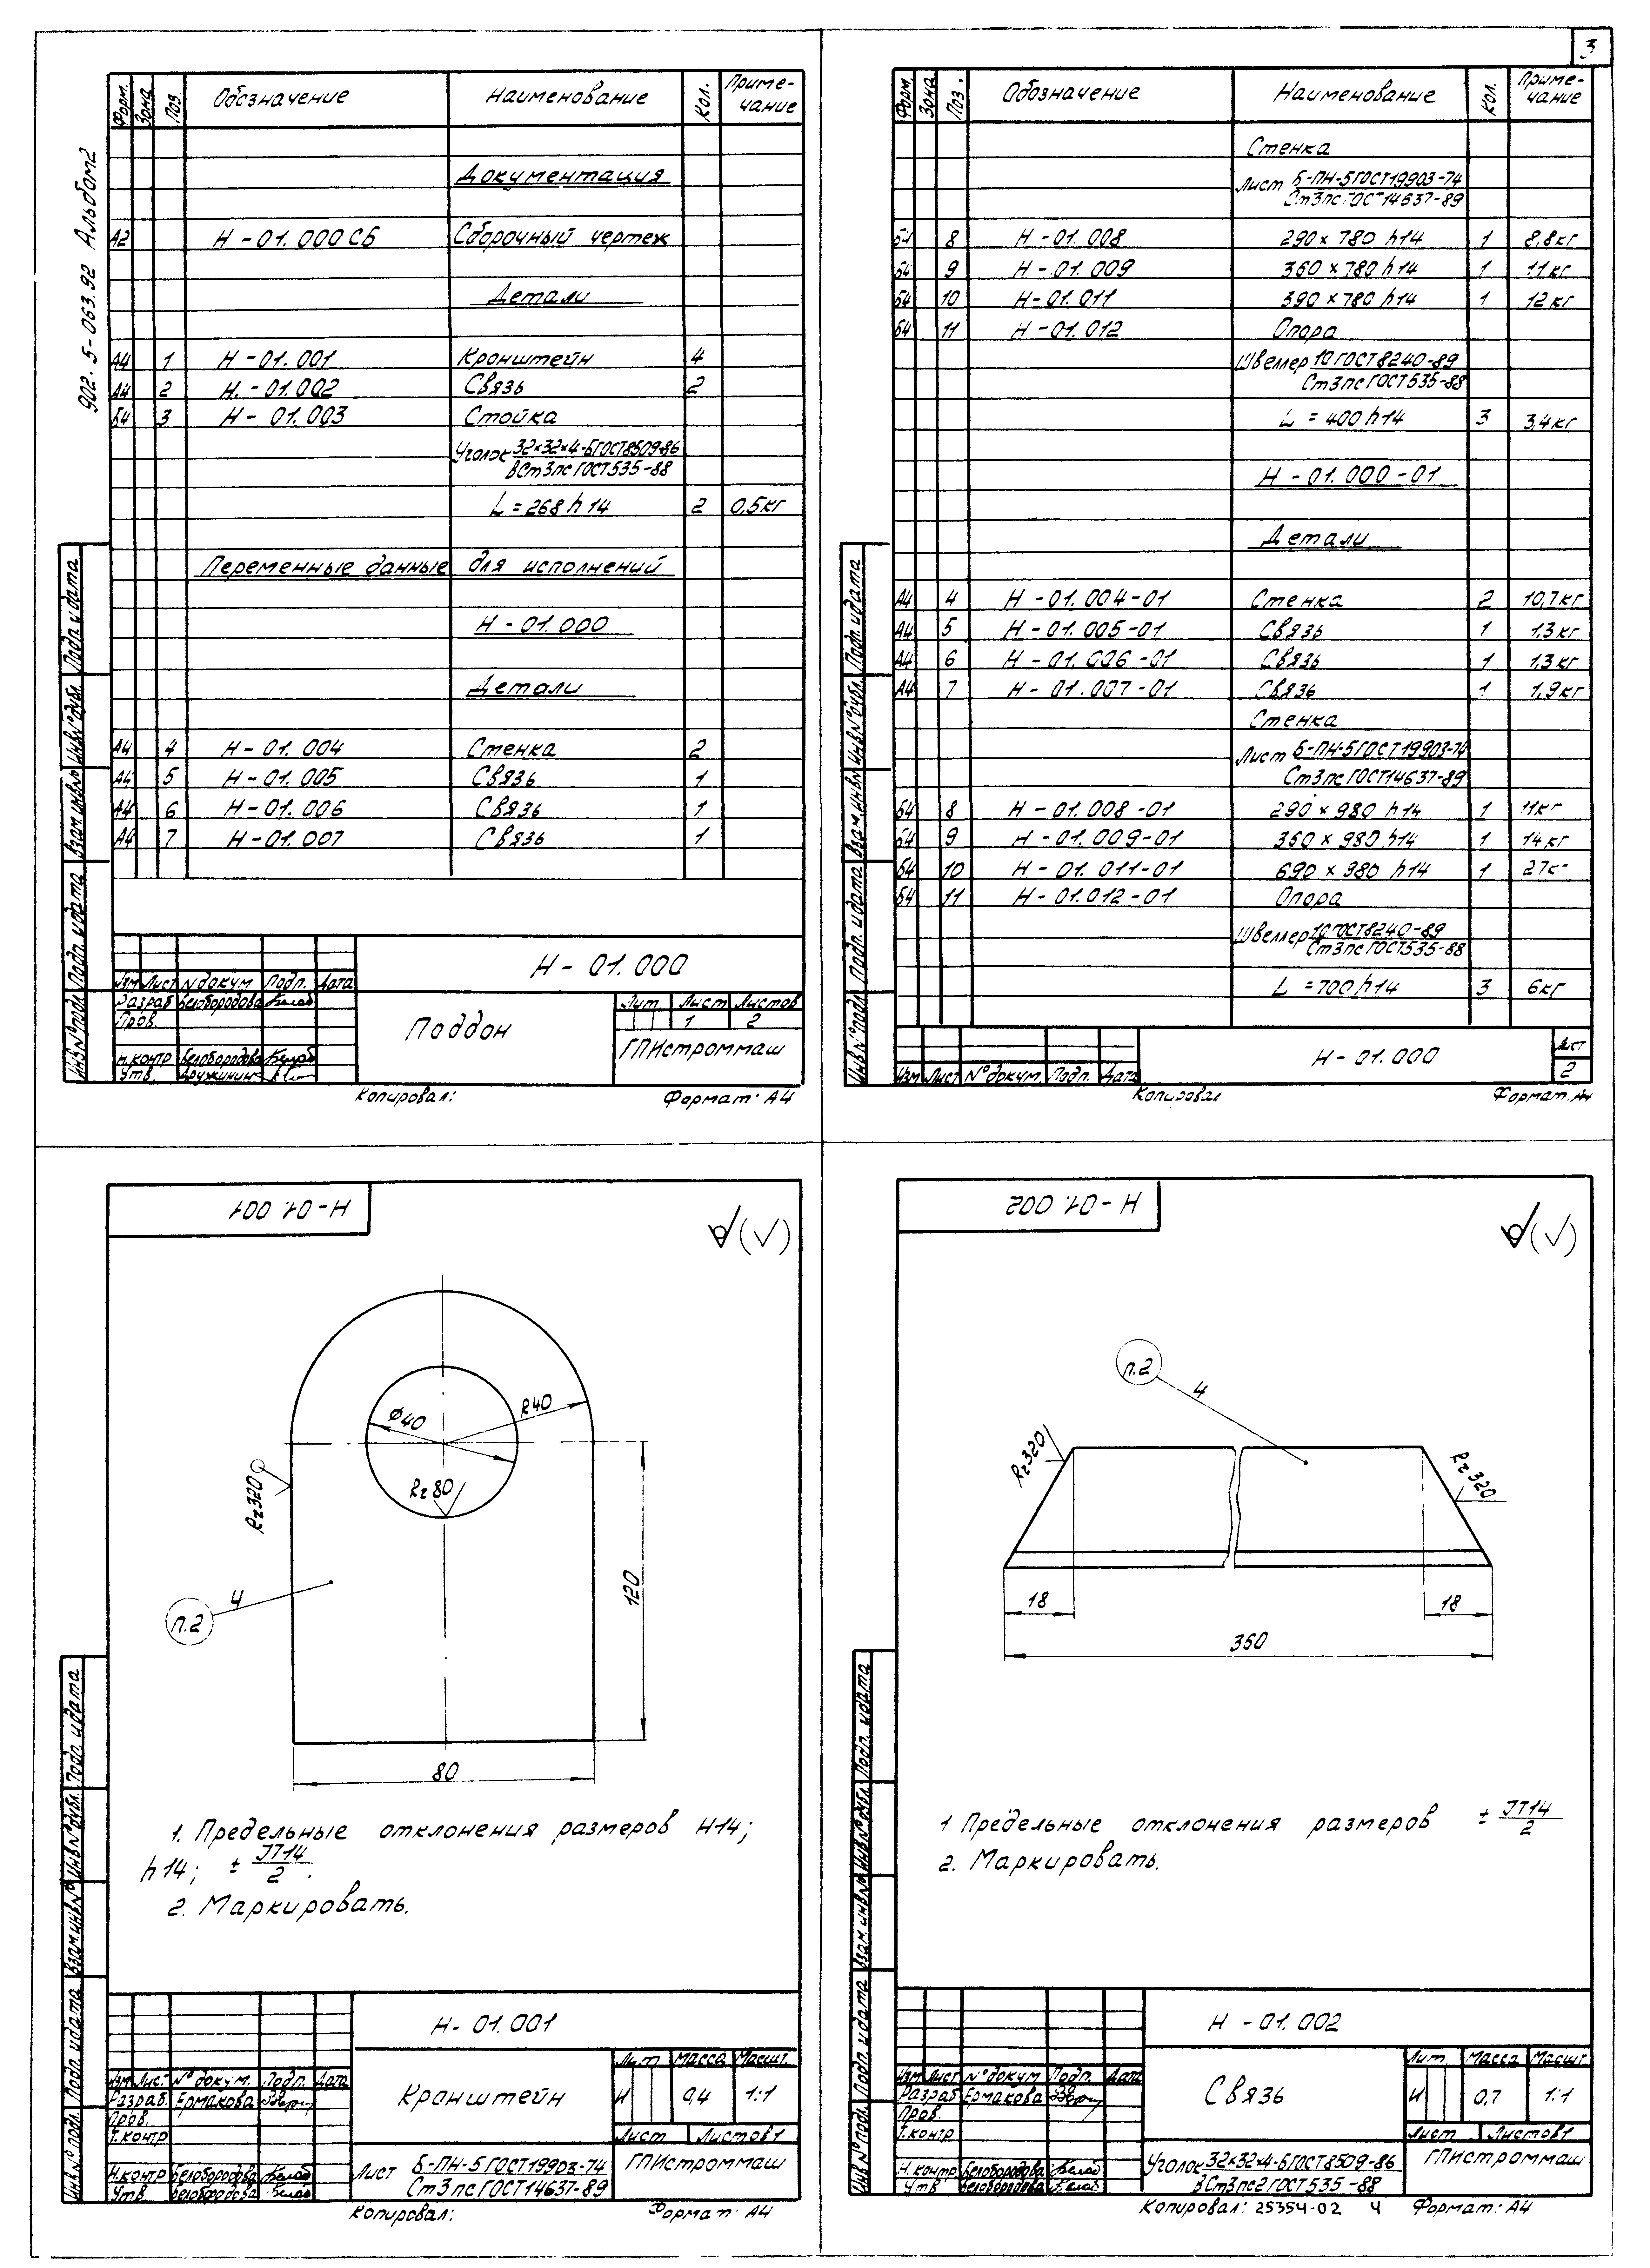 3
902.5-063.92 Альбом2
Форм. Зона Поз. Обозначение Наименование Кол. Примечание
Документация
А2 Н-01.000СБ Сборочный чертеж
Детали
А4 1 Н-01.001 Кронштейн 4
А4 2 Н-01.002 Связь 2
Б4 3 Н-01.003 Стойка
Уголок 32×32×4-Б ГОСТ 8509-86
ВСт3пс ГОСТ 535-88
L=268 h14 2 0,5кг
Переменные данные для исполнений
Н-01.000
Детали
А4 4 Н-01.004 Стенка 2
А4 5 Н-01.005 Связь 1
А4 6 Н-01.006 Связь 1
А4 7 Н-01.007 Связь 1
Н-01.000
Изм Лист N докум Подп. Дата
Разраб Белобородова
Пров.
Н.контр Белобородова
Утв. Дружинин
Поддон
Лит. Лист Листов
1 2
ГПИстроммаш
Инв№подл Подп. и дата Взам инв№ Инв№дубл. Подп. и дата
Копировал: Формат: А4
Форм. Зона Поз. Обозначение Наименование Кол. Примечание
Стенка
Лист Б-ПН-5 ГОСТ 19903-74
Ст3пс ГОСТ 14637-89
Б4 8 Н-01.008 290×780 h14 1 8,8кг
Б4 9 Н-01.009 360×780 h14 1 11кг
Б4 10 Н-01.011 390×780 h14 1 12кг
Б4 11 Н-01.012 Опора
Швеллер 10 ГОСТ 8240-89
Ст3пс ГОСТ 535-88
L=400 h14 3 3,4кг
Н-01.000-01
Детали
А4 4 Н-01.004-01 Стенка 2 10,7кг
А4 5 Н-01.005-01 Связь 1 1,3кг
А4 6 Н-01.006-01 Связь 1 1,3кг
А4 7 Н-01.007-01 Связь 1 1,9кг
Стенка
Лист Б-ПН-5 ГОСТ 19903-74
Ст3пс ГОСТ 14637-89
Б4 8 Н-01.008-01 290×980 h14 1 11кг
Б4 9 Н-01.009-01 360×980 h14 1 14кг
Б4 10 Н-01.011-01 690×980 h14 1 27кг
Б4 11 Н-01.012-01 Опора
Швеллер 10 ГОСТ 8240-89
Ст3пс ГОСТ 535-88
L=700 h14 3 6кг
Изм Лист N°докум. Подп. Дата
Н-01.000
Лист
2
Инв№подл Подп. и дата Взам.инв№ Инв№дубл. Подп. и дата
Копировал Формат. А4
Н-01.001
(√)
Ø40
R40
Rz80
Rz320
п.2
4
120
80
1. Предельные отклонения размеров Н14;
h14; ± JT14/2.
2. Маркировать.
Н-01.001
Изм Лист N°докум. Подп. Дата
Разраб. Ермакова
Пров.
Т.контр
Н.контр Белобородова
Утв. Белобородова
Кронштейн
Лит Масса Масшт.
И 0,4 1:1
Лист Листов 1
Лист Б-ПН-5 ГОСТ 19903-74
Ст3пс ГОСТ 14637-89
ГПИстроммаш
Инв№подл. Подп. и дата Взам.инв№ Инв№дубл. Подп. и дата
Копировал: Формат: А4
Н-01.002
(√)
п.2
4
Rz320
Rz320
18
18
360
1 Предельные отклонения размеров ± JT14/2
2. Маркировать.
Н-01.002
Изм Лист N°докум Подп. Дата
Разраб. Ермакова
Пров.
Т.контр
Н.контр Белобородова
Утв Белобородова
Связь
Лит Масса Масшт
И 0,7 1:1
Лист Листов 1
Уголок 32×32×4-Б ГОСТ 8509-86
ВСт3пс2 ГОСТ 535-88
ГПИстроммаш
Инв№подл. Подп. и дата Взам.инв№ Инв№дубл. Подп. и дата
Копировал: 25354-02 4 Формат: А4